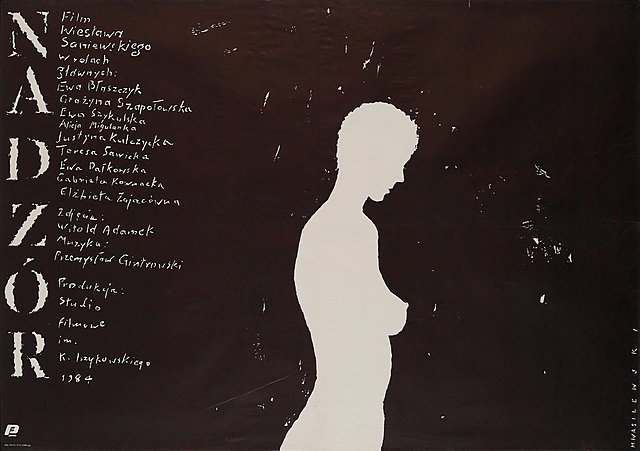 NADZÓR
Film
Wiesława
Saniewskiego
w rolach
głównych:
Ewa Błaszczyk
Grażyna Szapołowska
Ewa Szykulska
Alicja Migulanka
Justyna Kulczycka
Teresa Sawicka
Ewa Dałkowska
Gabriela Kownacka
Elżbieta Zającówna
Zdjęcia:
Witold Adamek
Muzyka:
Przemysław Gintrowski
Produkcja:
Studio
filmowe
im.
K. Irzykowskiego
1984
M.WASILEWSKI